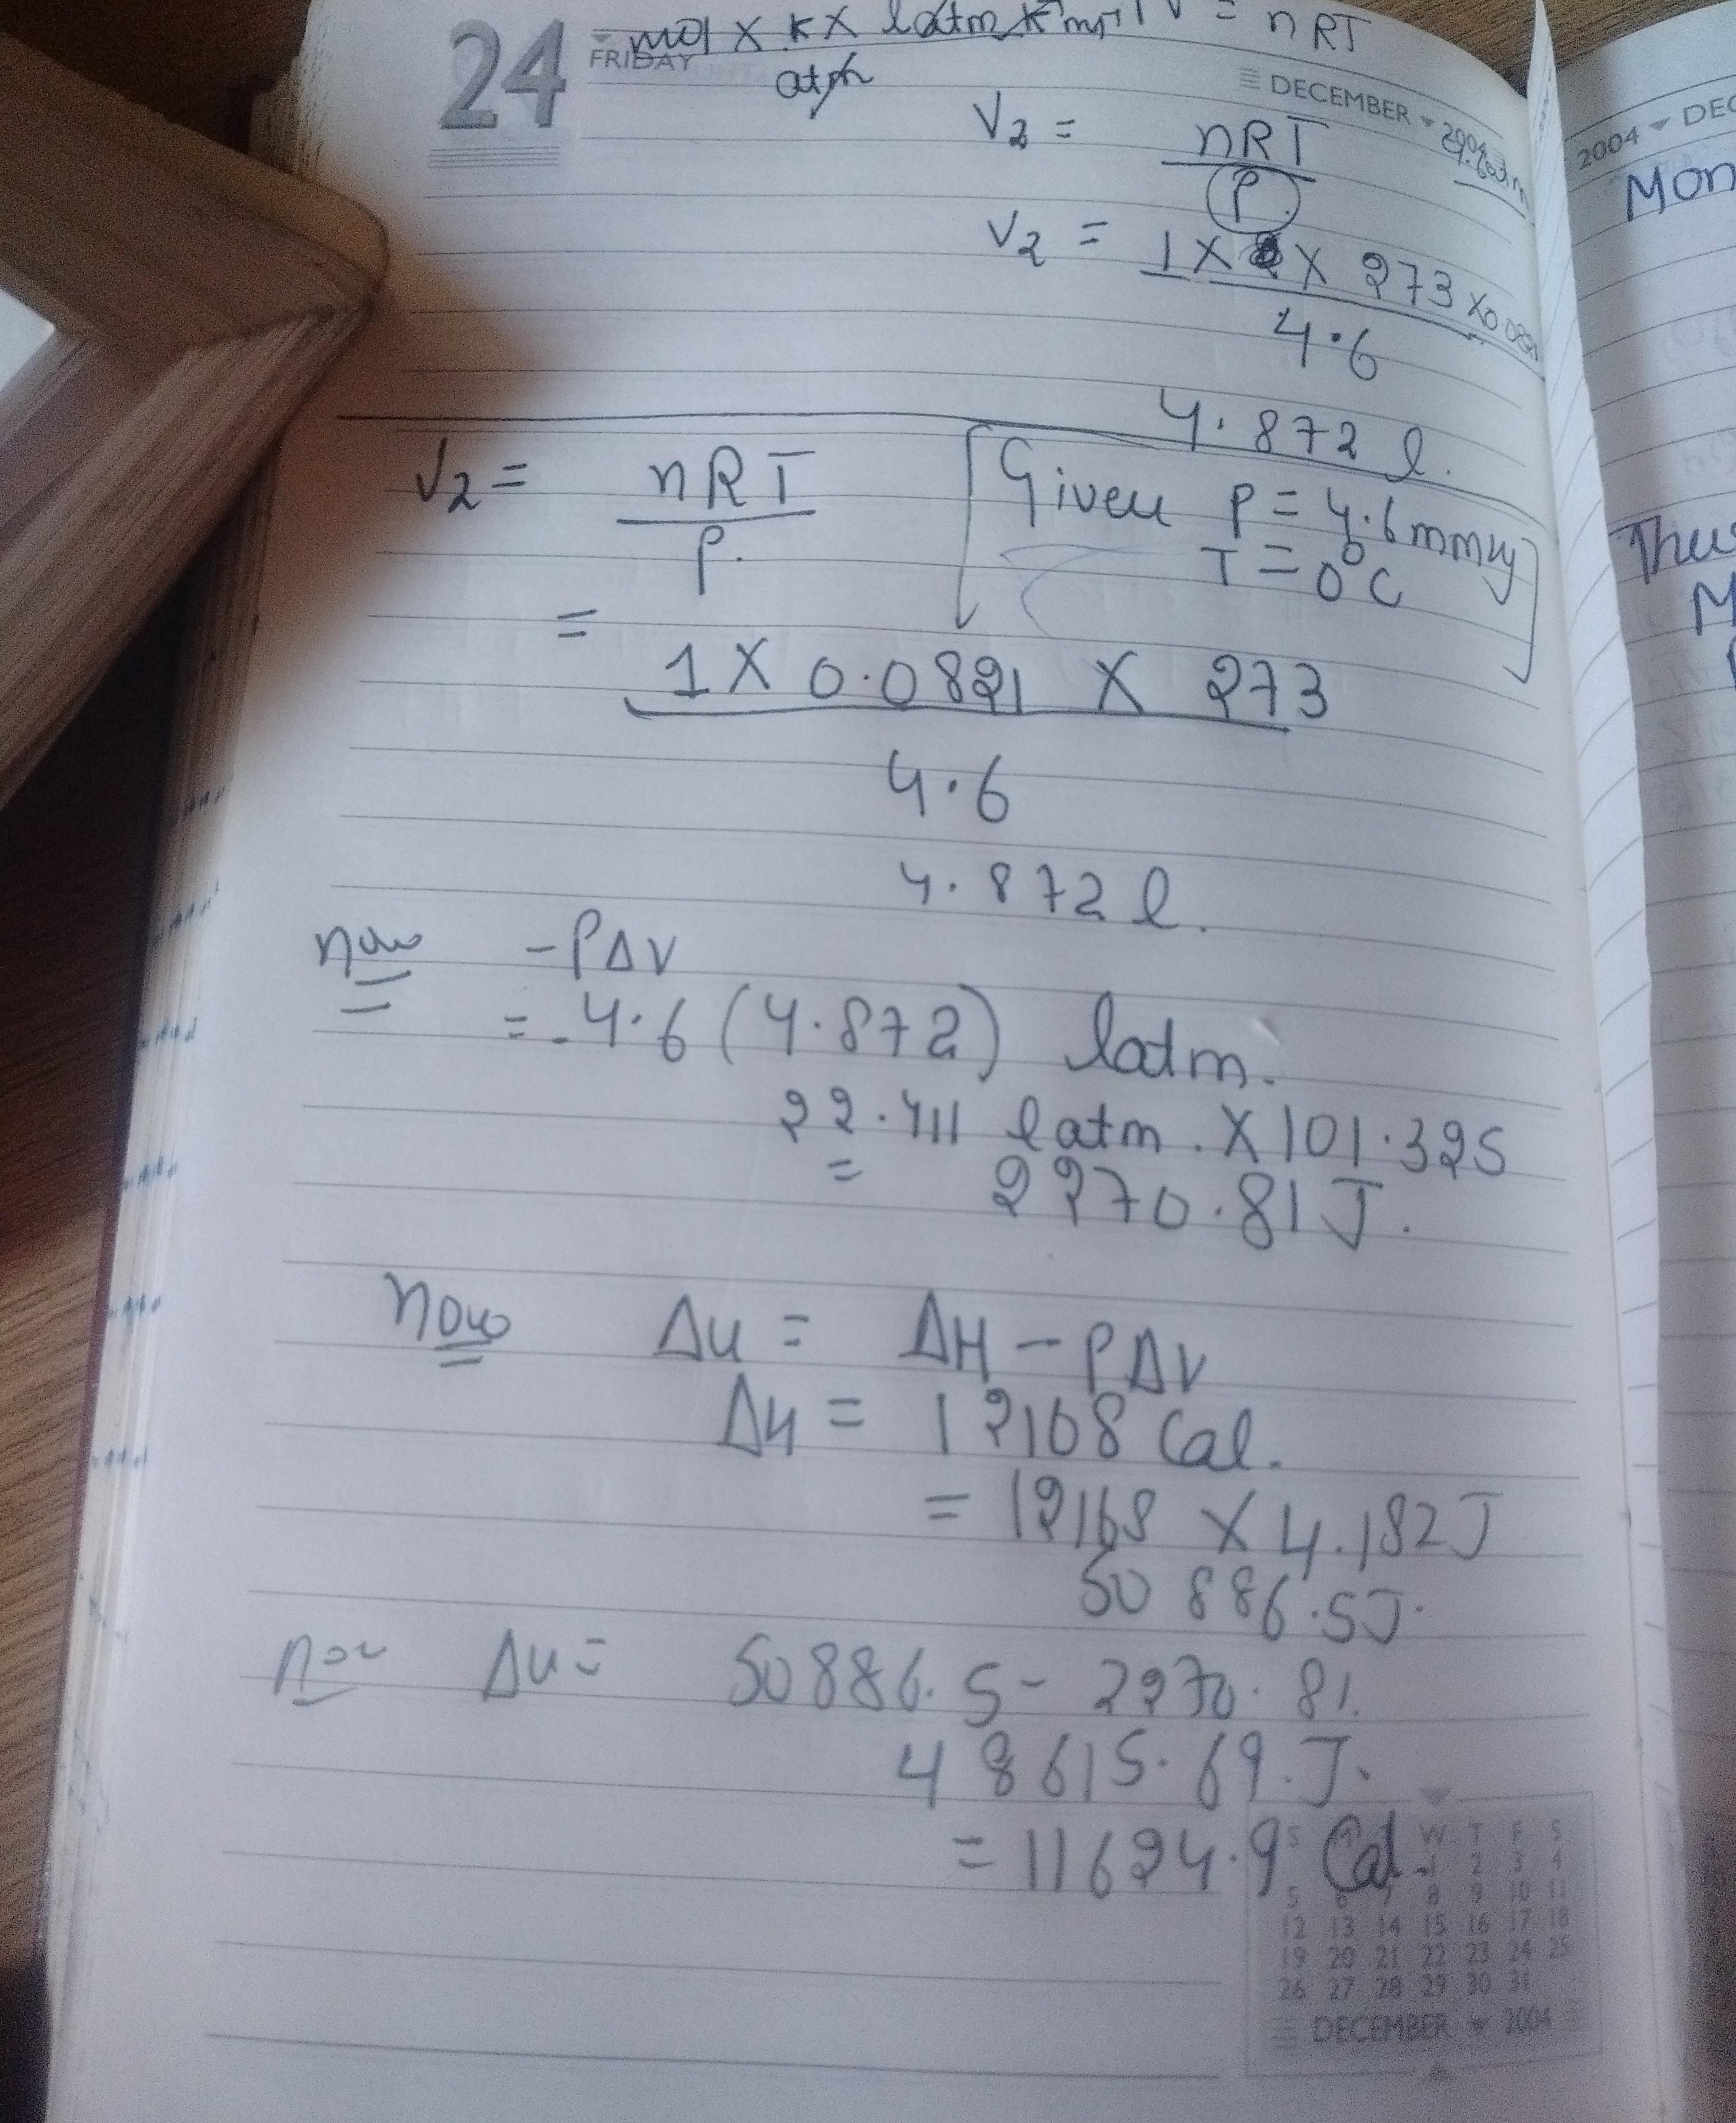 24
FRIDAY
mol X K X latm K⁻¹m⁻¹
atm
V = nRT
DECEMBER 2004
V₂ = nRT
P
V₂ = 1 X X 273 X 0.0821
4.6
4.872 l.
V₂ = nRT
P.
[Given P = 4.6 mmHg
T = 0°C]
= 1 X 0.0821 X 273
4.6
4.872 l.
now -PΔV
= -4.6 (4.872) latm.
22.411 latm. X 101.325
= 2270.81 J.
Now Δu = ΔH - PΔV
ΔH = 12168 Cal.
= 12168 X 4.182J
50886.5J.
now Δu = 50886.5 - 2270.81.
48615.69. J.
= 11624.9 Cal.
W T F S
1 2 3 4
5 6 7 8 9 10 11
12 13 14 15 16 17 18
19 20 21 22 23 24 25
26 27 28 29 30 31
DECEMBER 2004
2004 DEC
Mon